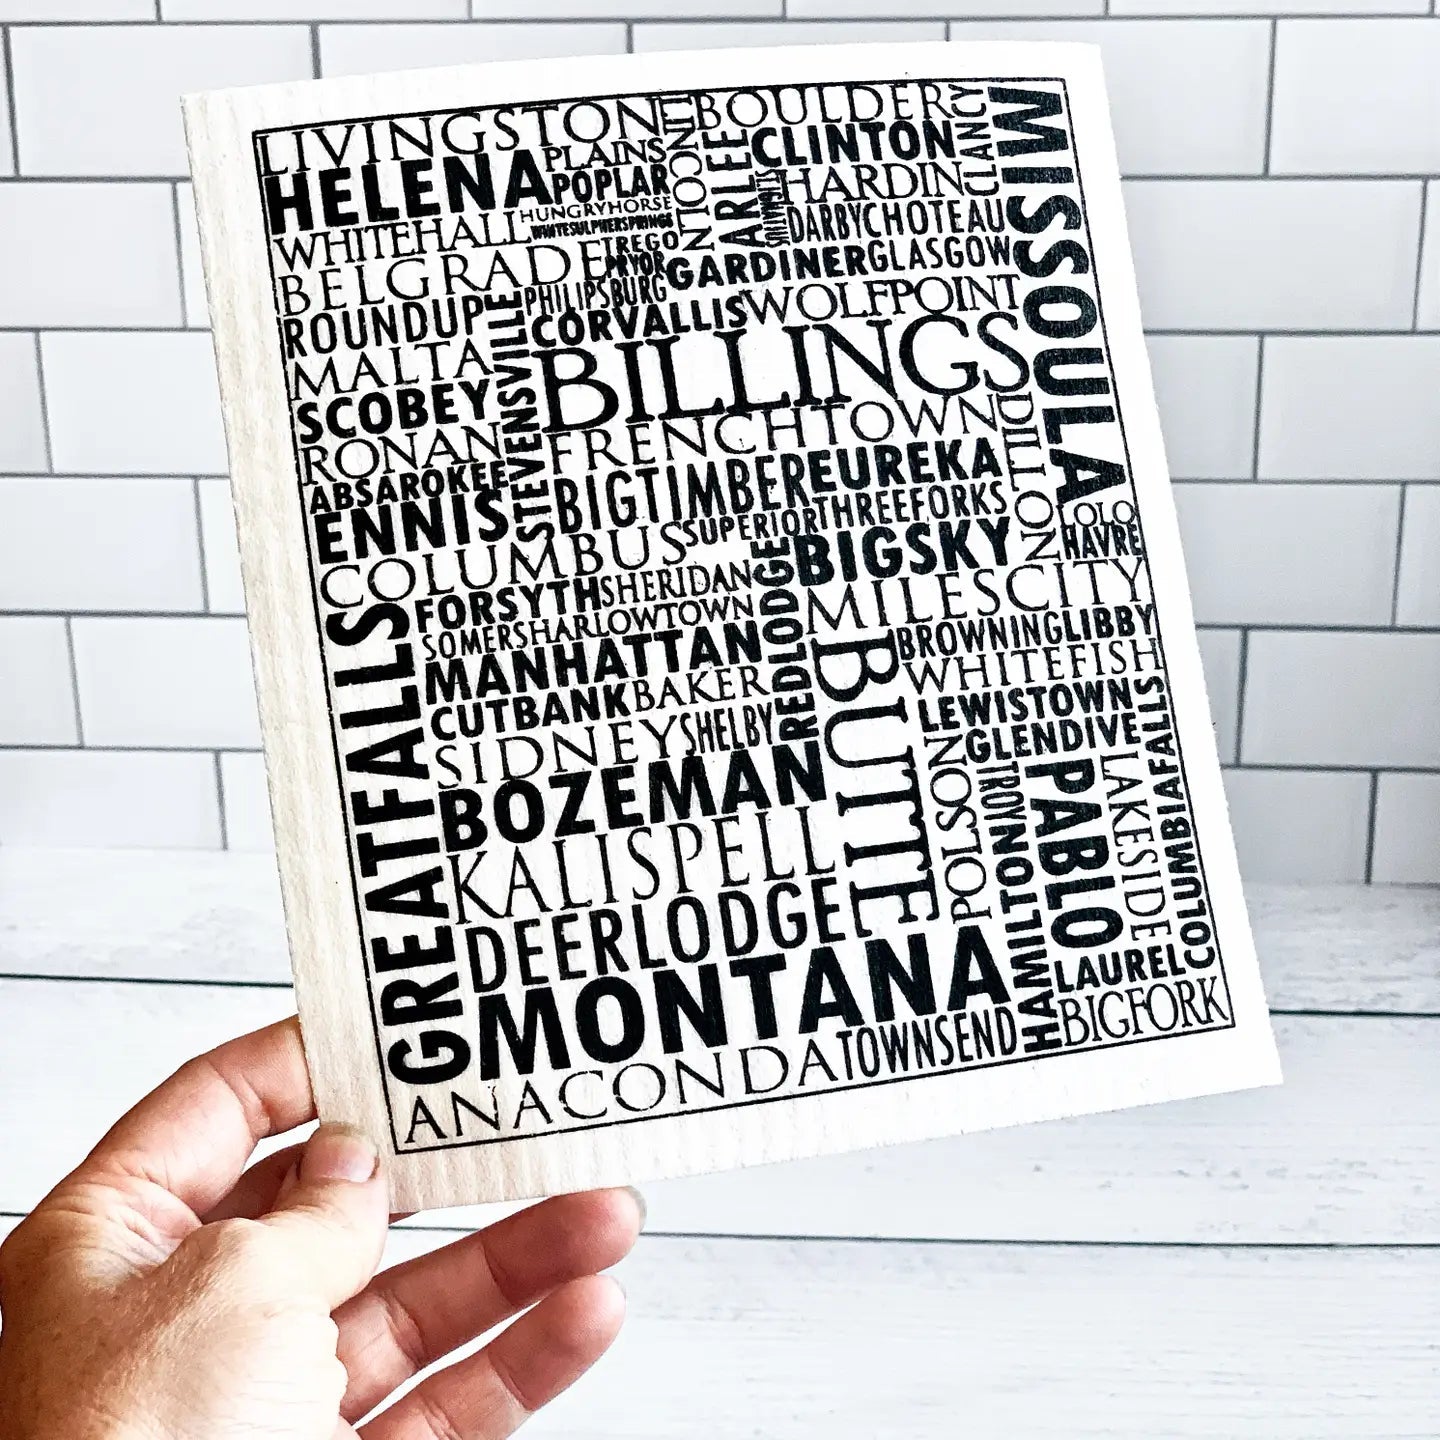 LIVINGSTON
BOULDER
CLANCY
MISSOULA
HELENA
PLAINS
POPLAR
LINCOLN
ARLEE
CLINTON
HARDIN
HUNGRYHORSE
WHITESULPHERSPRINGS
WHITEHALL
DARBY
CHOTEAU
TREGO
PRYOR
BELGRADE
GARDINER
GLASGOW
PHILIPSBURG
ROUNDUP
CORVALLIS
WOLFPOINT
STEVENSVILLE
MALTA
BILLINGS
SCOBEY
RONAN
FRENCHTOWN
DILLON
ABSAROKEE
BIGTIMBER
EUREKA
ENNIS
SUPERIOR
THREEFORKS
LOLO
HAVRE
COLUMBUS
BIGSKY
FORSYTH
SHERIDAN
REDLODGE
MILESCITY
GREATFALLS
SOMERS
HARLOWTOWN
BROWNING
LIBBY
MANHATTAN
BUTTE
WHITEFISH
CUTBANK
BAKER
LEWISTOWN
SIDNEY
SHELBY
GLENDIVE
BOZEMAN
POLSON
TROY
PABLO
LAKESIDE
COLUMBIAFALLS
KALISPELL
HAMILTON
DEERLODGE
LAUREL
MONTANA
BIGFORK
ANACONDA
TOWNSEND